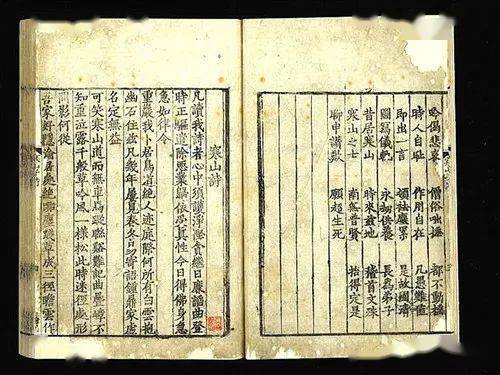 吟偈悲哀 僧俗咄捶 都不動搖
時人自恥 作用自在 凡愚難值
即出一言 頓祛塵累 是故國清
圖寫儀軌 永劫供養 長為弟子
昔居寒山 時來茲地 稽首文殊
寒山之士 南無普賢 拾得定是
聊申讚歎 願超生死
寒山詩
凡讀我詩者心中須護淨慳貪繼日廉諂曲登
時正驅遣除惡業歸依受真性今日得佛身急
急如律令
重巖我卜居鳥道絕人迹庭際何所有白雲抱
幽石住茲凡幾年屢見春冬易寄語鐘鼎家虛
名定無益
可笑寒山道而無車馬蹤聯谿難記曲疊嶂不
知重泣露千般草吟風一樣松此時迷徑處形
問影何從
吾家好隱淪居處絕囂塵踐草成三徑瞻雲作